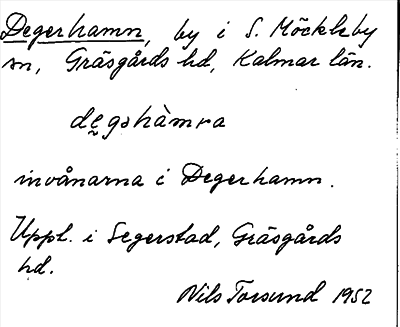 Degerhamn, by i S. Möckleby
sn, Gräsgårds hd, Kalmar län.
dęgshàmra
invånarna i Degerhamn.
Uppl. i Segerstad, Gräsgårds
hd.
Nils Torsund 1952